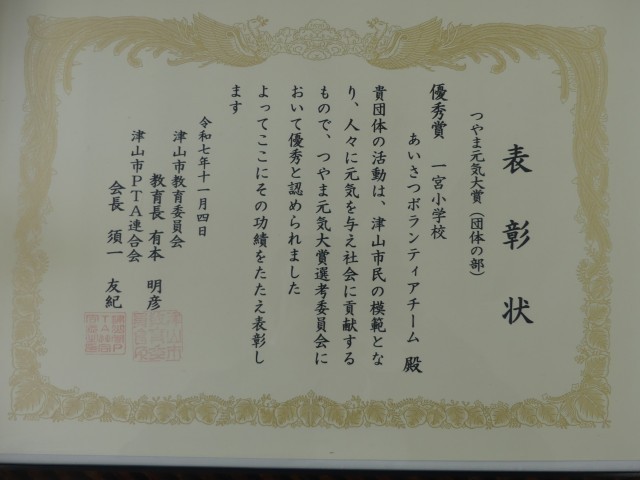 表彰状
つやま元気大賞（団体の部）
優秀賞　一宮小学校
あいさつボランティアチーム　殿
貴団体の活動は、津山市民の模範とな
り、人々に元気を与え社会に貢献する
もので、つやま元気大賞選考委員会に
おいて優秀と認められました
よってここにその功績をたたえ表彰し
ます
令和七年十一月四日
津山市教育委員会
教育長　有本　明彦
津山市ＰＴＡ連合会
会長　須一　友紀